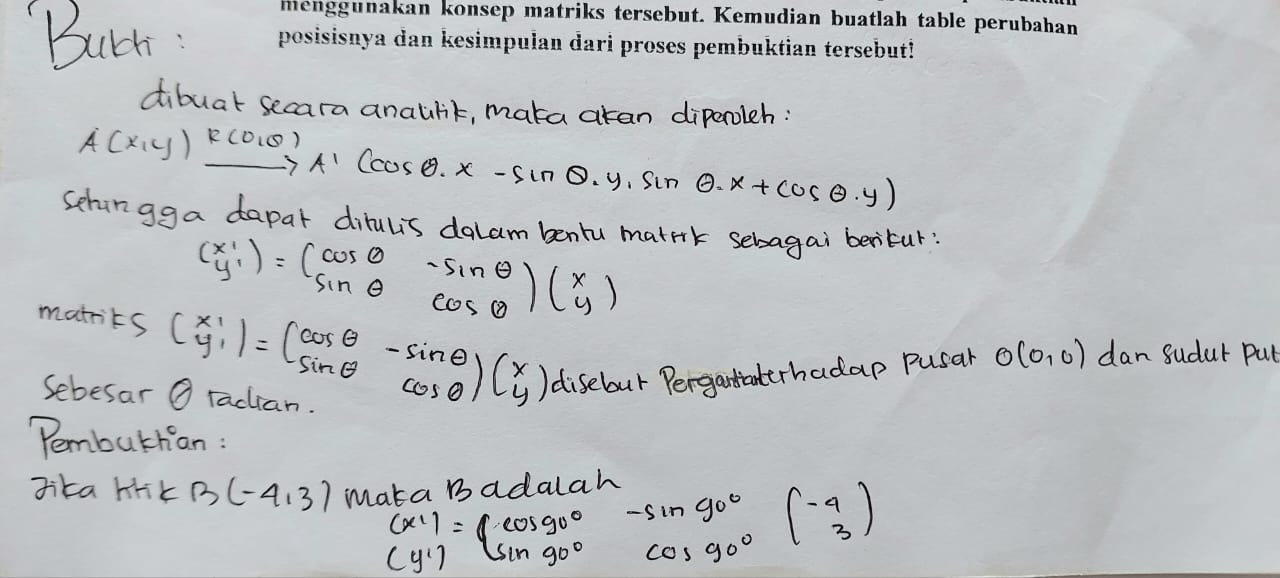 menggunakan konsep matriks tersebut. Kemudian buatlah table perubahan
Bukti :
posisisnya dan kesimpulan dari proses pembuktian tersebut!
dibuat secara analitik, maka akan diperoleh :
A(x,y) R(0,θ) → A' (cos θ. x - sin θ. y, sin θ. x + cos θ. y)
Sehingga dapat ditulis dalam bentu matrik sebagai berikut:
(x' y') = (cos θ -sin θ sin θ cos θ) (x y)
matriks (x' y') = (cos θ -sin θ sin θ cos θ) (x y) disebut terhadap pusat O(0,0) dan sudut put
Sebesar θ radian.
Pembuktian :
Jika titik B (-4,3) maka B adalah
(x') = (cos 90° -sin 90° (-4
(y') sin 90° cos 90° 3)